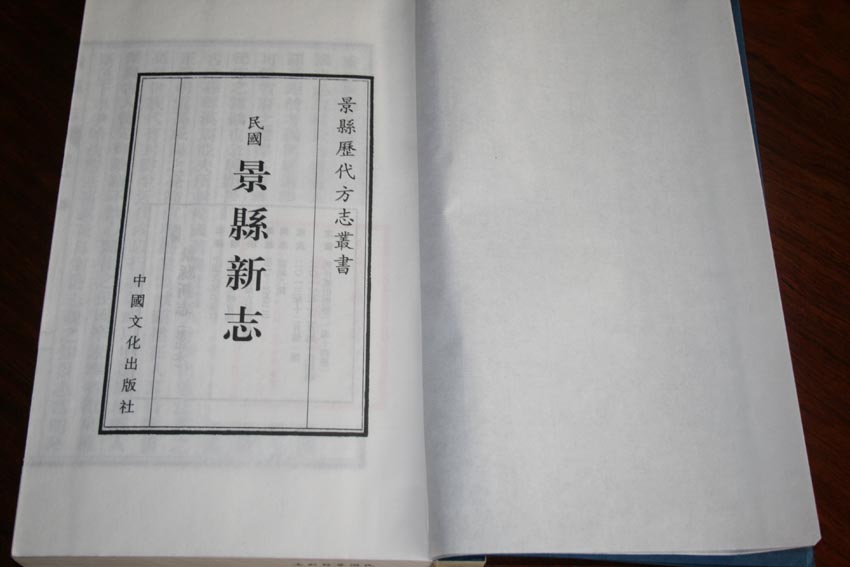 景縣歷代方志叢書
民國
景縣新志
中國文化出版社